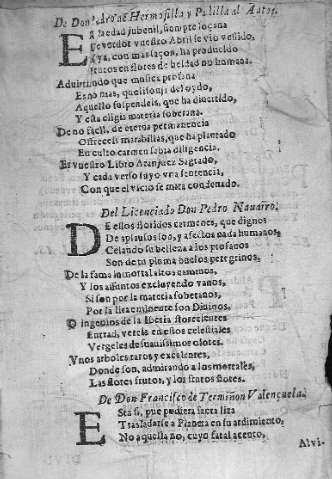 De Don Pedro de Hermosilla y Padilla al Autor.
En la edad juvenil, siempre loçana
de verdor vuestro Abril se vio vestido,
Y ya, con mas saçon, ha producido
frutos en flores de beldad no humana.
Advirtiendo que musica profana
Es no mas, que lisonja del oydo,
Aquello suspendeis, que ha divertido,
Y esta elegis materia soberana.
De no facil, de eterna permanencia
Ofreceis maravillas, que ha plantado
En culto carmen sabia diligencia.
Es vuestro Libro Aranjuez Sagrado,
Y cada verso suyo una sentencia,
Con que el vicio se mira condenado.
Del Licenciado Don Pedro Navarro.
DE ellos floridos carmenes, que dignos
De espiritus son, y afectos nada humanos,
Celando su belleza a los profanos
Son de tu pluma buelos peregrinos,
De la fama inmortal altos caminos,
Y los assuntos excluyendo vanos,
Si son por la materia soberanos,
Por la lira eminente son Divinos.
O ingenios de la Iberia florecientes
Entrad, vereis en estos celestiales
Vergeles de suavissimos olores.
Unos arboles raros y excelentes,
Donde son, admirando a los mortales,
Las flores frutos, y los frutos flores.
De Don Francisco de Termiñon Valençuela.
ESta si, que pudiera sacra lira
Trasladarse a Planeta en su ardimiento,
No aquella no, cuyo fatal acento,
Alvi-